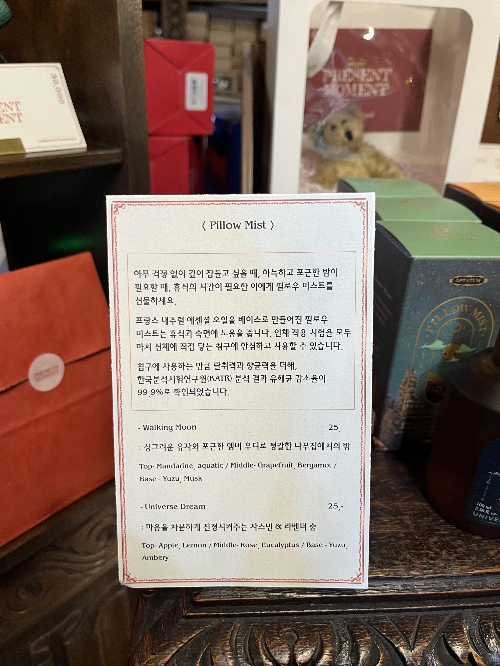 PRESENT
MOMENT
< Pillow Mist >
아무 걱정 없이 깊이 잠들고 싶을 때, 아늑하고 포근한 밤이
필요할 때, 휴식의 시간이 필요한 이에게 필로우 미스트를
선물하세요.
프랑스 내추럴 에센셜 오일을 베이스로 만들어진 필로우
미스트는 휴식과 숙면에 도움을 줍니다. 인체 적용 시험을 모두
마쳐 신체에 직접 닿는 침구에 안심하고 사용할 수 있습니다.
침구에 사용하는 만큼 탈취력과 항균력을 더해,
한국분석시험연구원(KATR) 분석 결과 유해균 감소율이
99.9%로 확인되었습니다.
- Walking Moon 25,
: 싱그러운 유자와 포근한 엠버 우디로 형갈한 나무집에서의 밤
Top- Mandarine, aquatic / Middle- Grapefruit, Bergamot /
Base - Yuzu, Musk
- Universe Dream 25,-
: 마음을 차분하게 진정시켜주는 자스민 & 라벤더 숲
Top- Apple, Lemon / Middle- Rose, Eucalyptus / Base - Yuzu,
Ambery
OPTATUM
PILLOW MIST
UNIVE